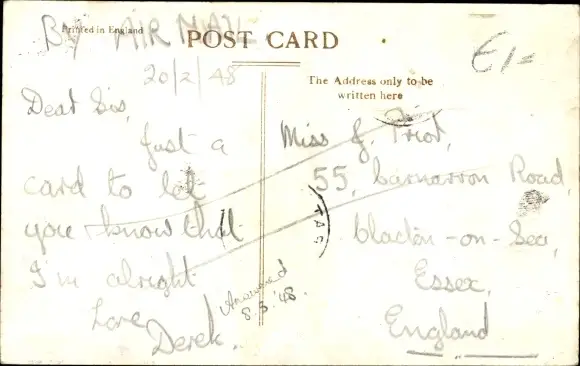 Printed in England
BY AIR MAIL
POST CARD
£1=
20/2/48
The Address only to be
written here
Dear Sis,
Just a
card to let
you know that
I'm alright
Love
Derek.
Answered
8.3.'48.
Miss J. Prior,
55, Carnarvon Road,
Clacton-on-Sea,
Essex,
England